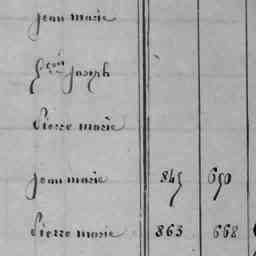 jean marie
fçois joseph
Pierre marie
jean marie 845 650
Pierre marie 863 668